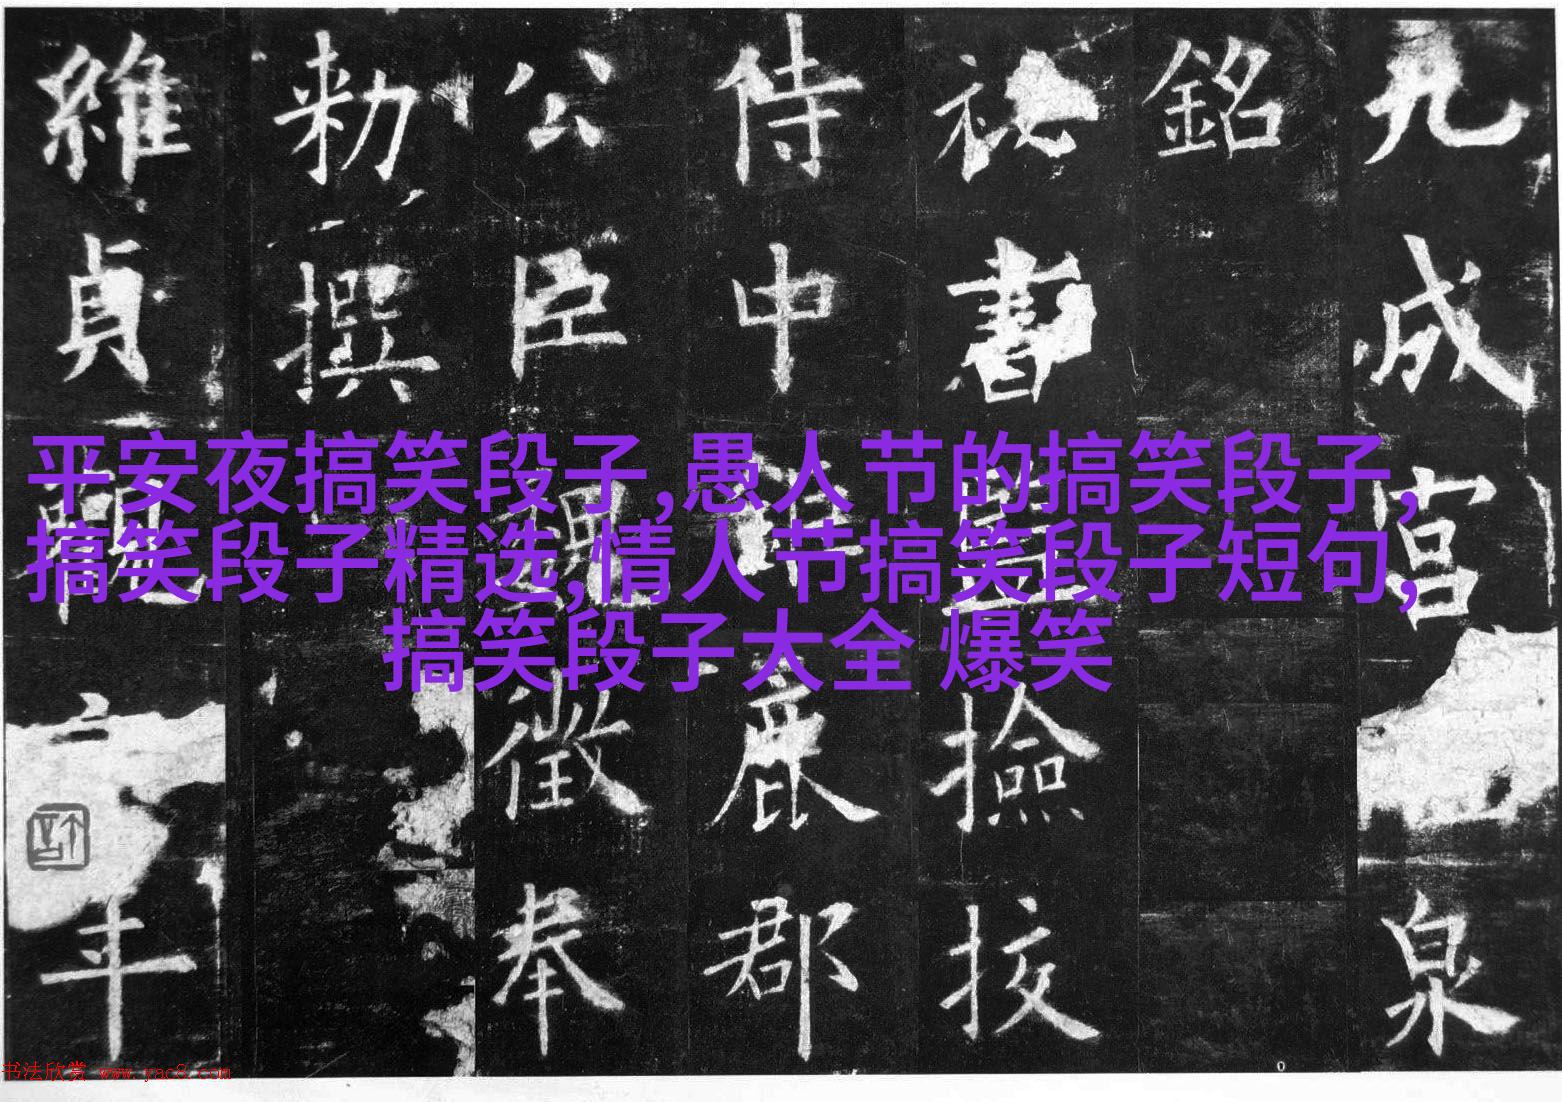 九成宮泉
銘
祕書監撿挍
侍中鹿郡
公臣魏徵奉
勑撰
維貞觀年
平安夜搞笑段子,愚人节的搞笑段子,
搞笑段子精选,情人节搞笑段子短句,
搞笑段子大全 爆笑
书法欣赏 www.yac8.com